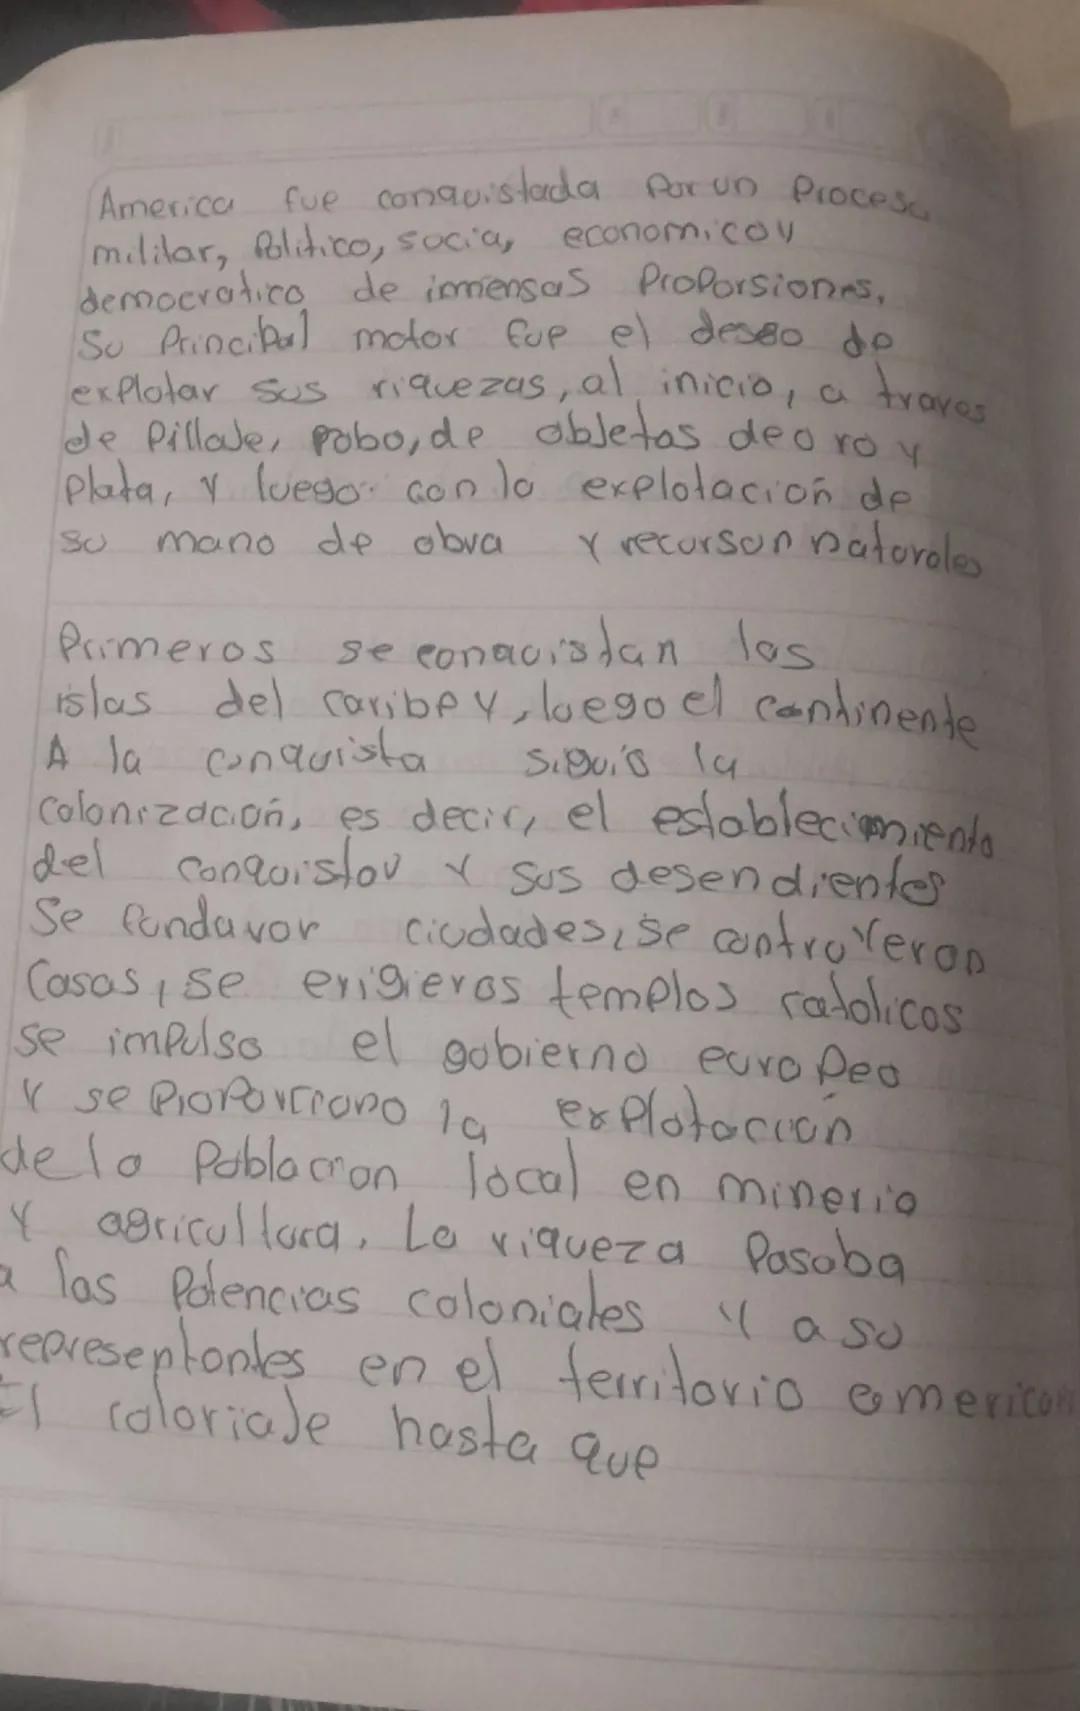 America fue conquistada Por un Proceso
mililar, Politico, socia, economicoy
democratico de inmensas Proporsiones.
Su Principal motor fue el deseo de
explotar sus riquezas, al inicio, a traves
de Pillaje, robo, de objetos de oro y
Plata, y luego con la explotacion de
su mano de obra y recurson naturales
Primeros se conquistan las
islas del caribe y, luego el continente
A la conquista siguio la
colonizacion, es decir, el establecimiento
del conquistov y sus desendientes
Se fundavor ciudades, se controyeron
Casas, se erigieros templos catolicos
se impulso el gobierno europeo
y se la explotacion
de la Poblacion local en mineria
y agricultura. La riqueza Pasaba
a las Potencias coloniales y a su
representantes en el territorio american
El coloriaje hasta que